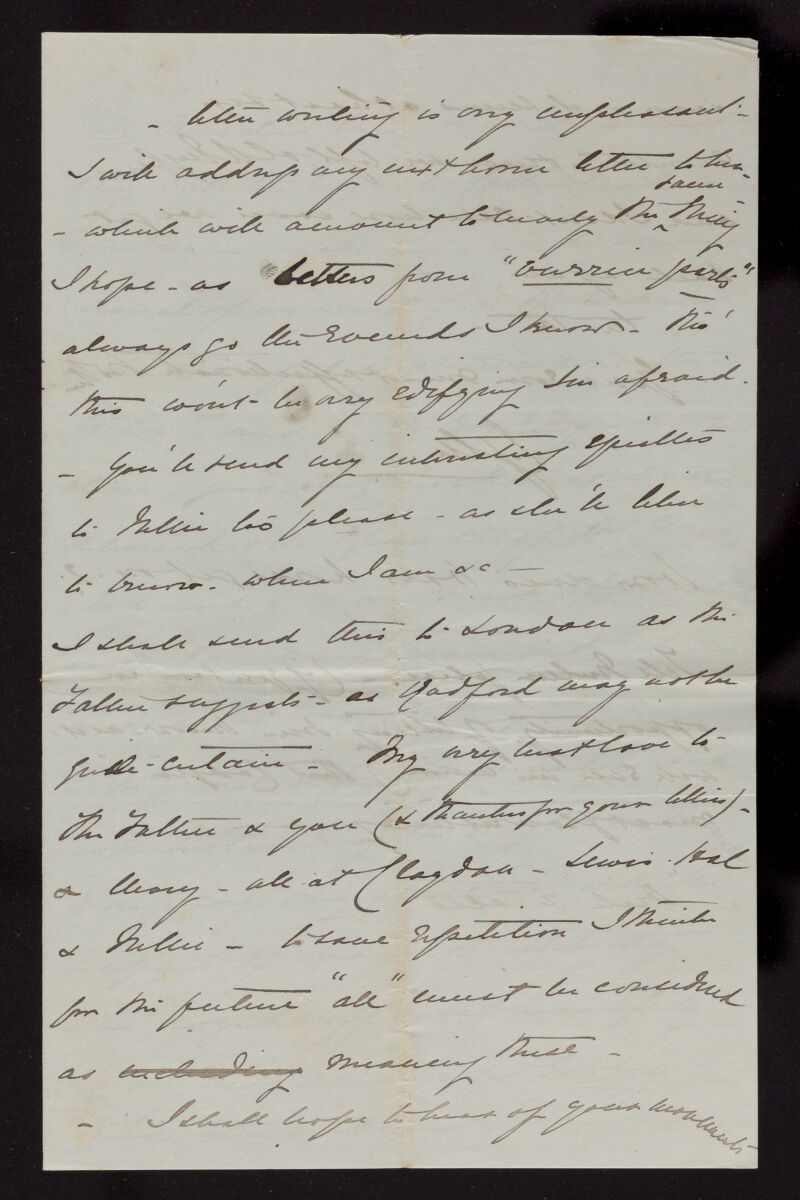 - letter writing is very unpleasant -
I will address my next home letter to him -
- which will amount to nearly the ^ same thing
I hope - as letters from "vurrin parts"
always go the rounds I know - tho'
this won't be very edifying I'm afraid.
- You'll send my interesting epistles
to Nellie too please - as she'll like
to know - where I am &c -
I shall send this to London as the
Father suggests - as Quidford may not be
quite certain - My very best love to
the Father & you (& thanks for your letters) -
& Mary - all at Clagdon - Lewis Hal
& Nellie - to save repetition I think
for the future "all" must be considered
as including meaning that -
- I shall hope to hear of your movements